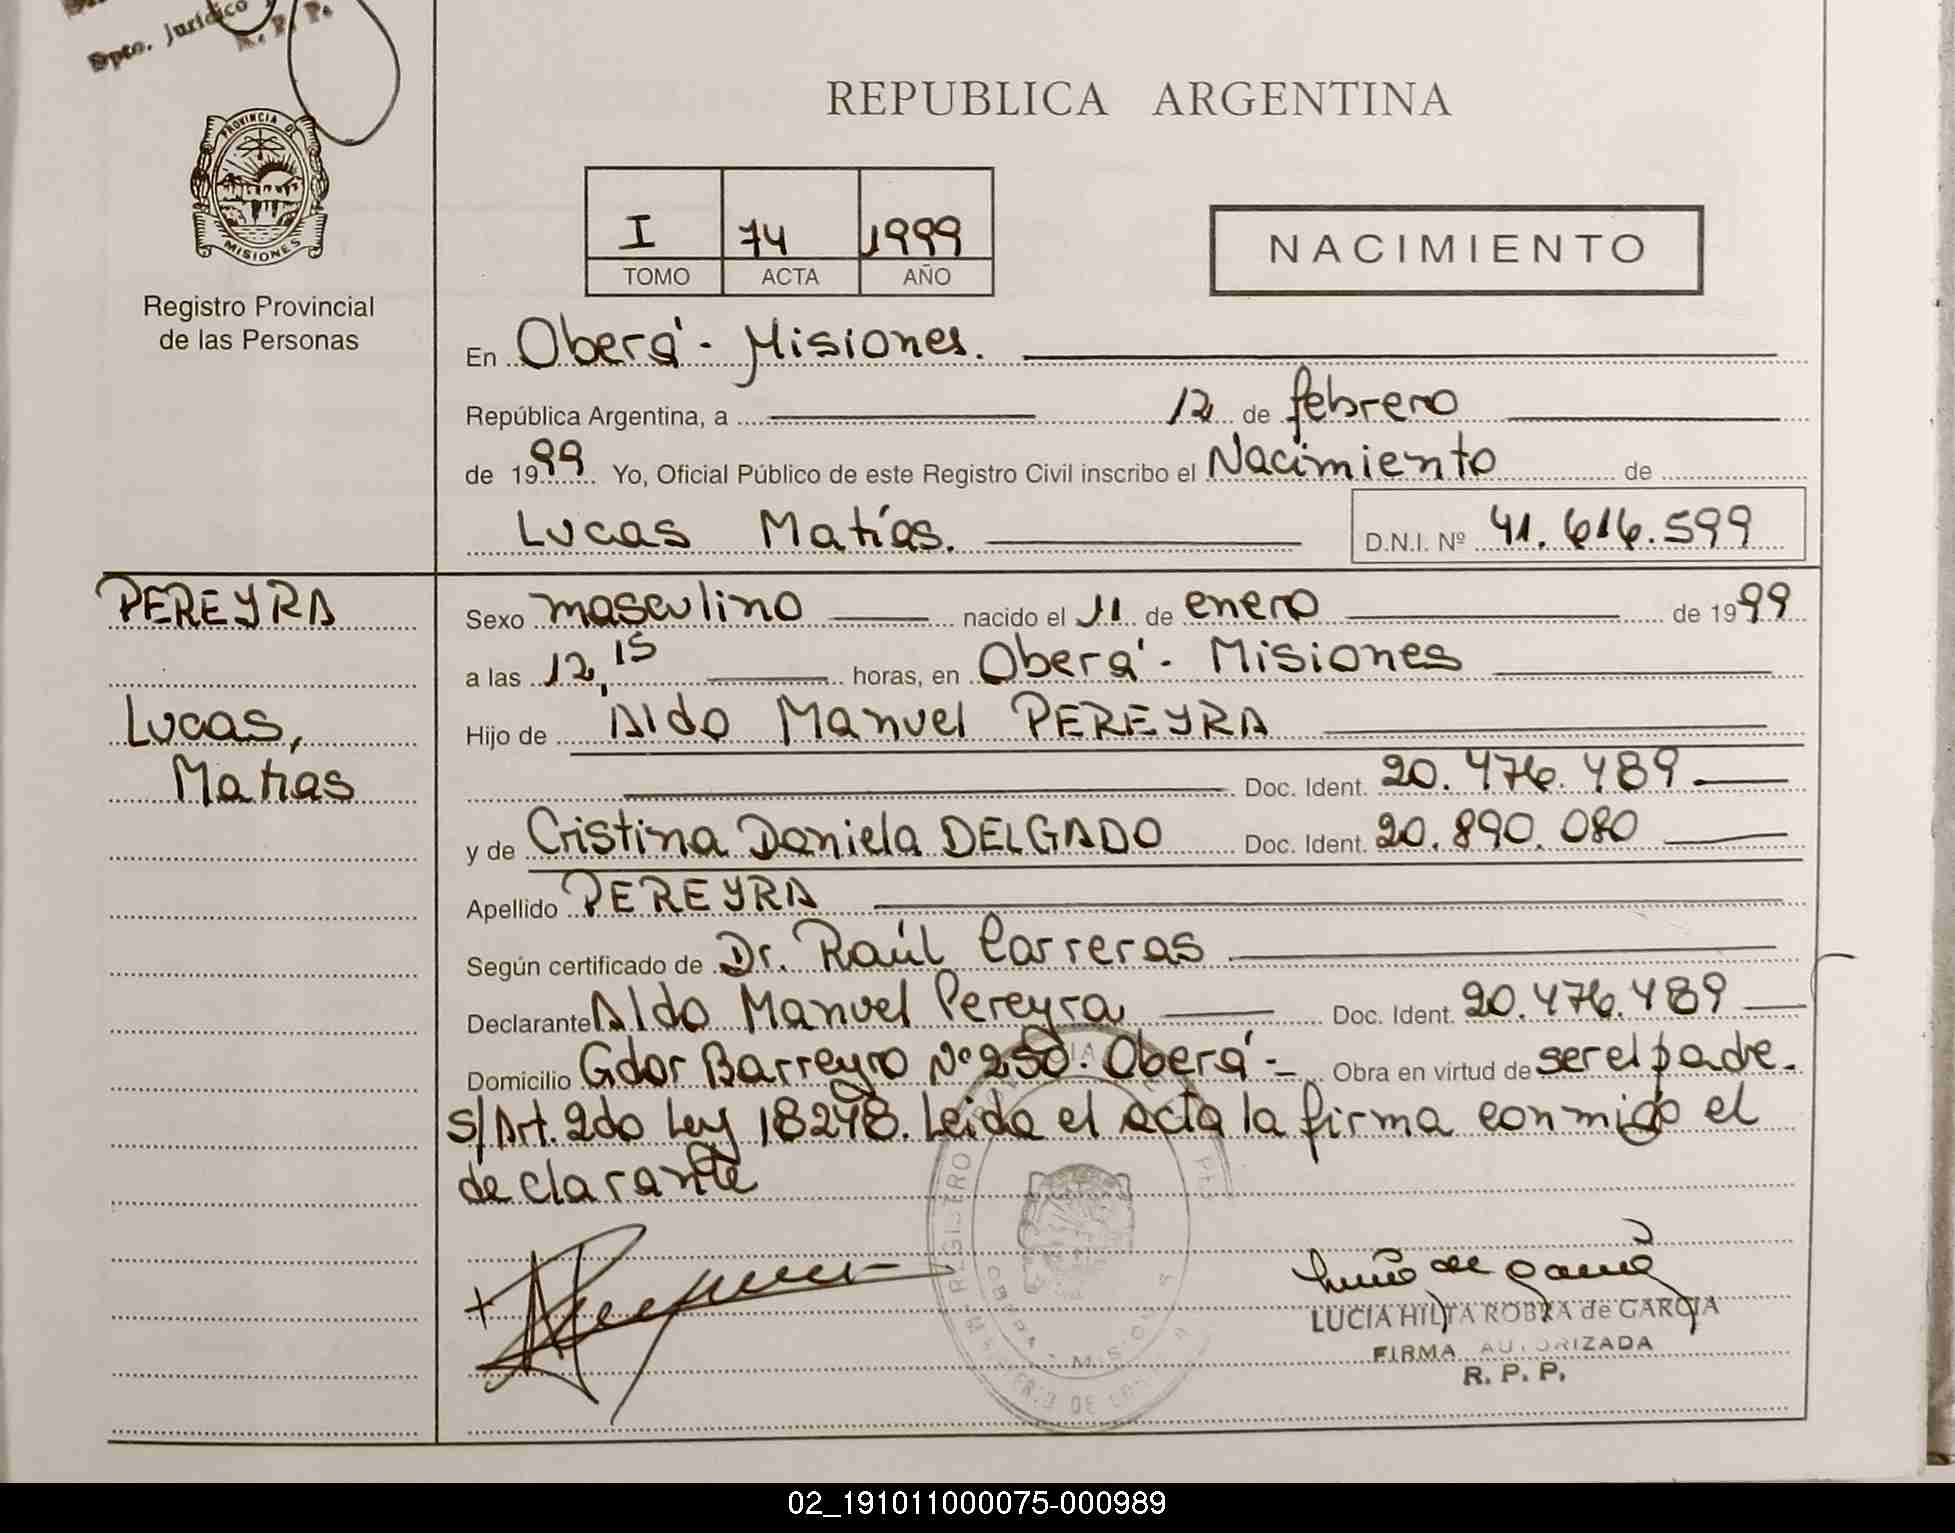 Dpto. Jurídico
R. P. P.
PROVINCIA DE
MISIONES
Registro Provincial
de las Personas
REPUBLICA ARGENTINA
I 74 1999
TOMO ACTA AÑO
NACIMIENTO
En Oberá - Misiones.
República Argentina, a 12 de febrero
de 1999 Yo, Oficial Público de este Registro Civil inscribo el Nacimiento de
Lucas Matías. D.N.I. Nº 41.616.599
PEREYRA
Lucas,
Matias
Sexo masculino nacido el 11 de enero de 1999
a las 12,15 horas, en Oberá - Misiones
Hijo de Aldo Manuel PEREYRA
Doc. Ident. 20.476.489
y de Cristina Daniela DELGADO Doc. Ident. 20.890.080
Apellido PEREYRA
Según certificado de Dr. Raúl Carreras
Declarante Aldo Manuel Pereyra Doc. Ident. 20.476.489
Domicilio Gdor Barreyro Nº 250. Oberá - Obra en virtud de ser el padre.
s/Art. 2do Ley 18248. Leida el acta la firma conmigo el
declarante
LUCIA HILDA ROBRA de GARCIA
FIRMA AUTORIZADA
R. P. P.
02_191011000075-000989